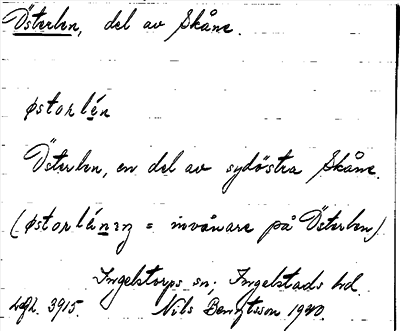 Österlen, del av Skåne.
østorlén
Österlen, en del av sydöstra Skåne.
(østorlénıŋ = invånare på Österlen)
Ingelstorps sn, Ingelstads hd.
3915. Nils Bengtsson 1940.